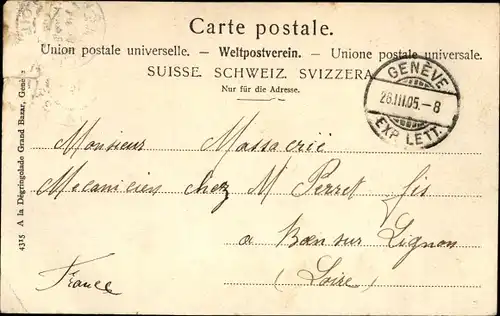 Carte postale.
Union postale universelle. — Weltpostverein. — Unione postale universale.
SUISSE. SCHWEIZ. SVIZZERA.
Nur für die Adresse.
GENÈVE
28.III.05.-8
EXP. LETT.
Monsieur Massacrié
Mecanicien chez M Perret fis
a Boen sur Lignon
(Loire)
France
4315 A la Dégringolade Grand Bazar, Genève